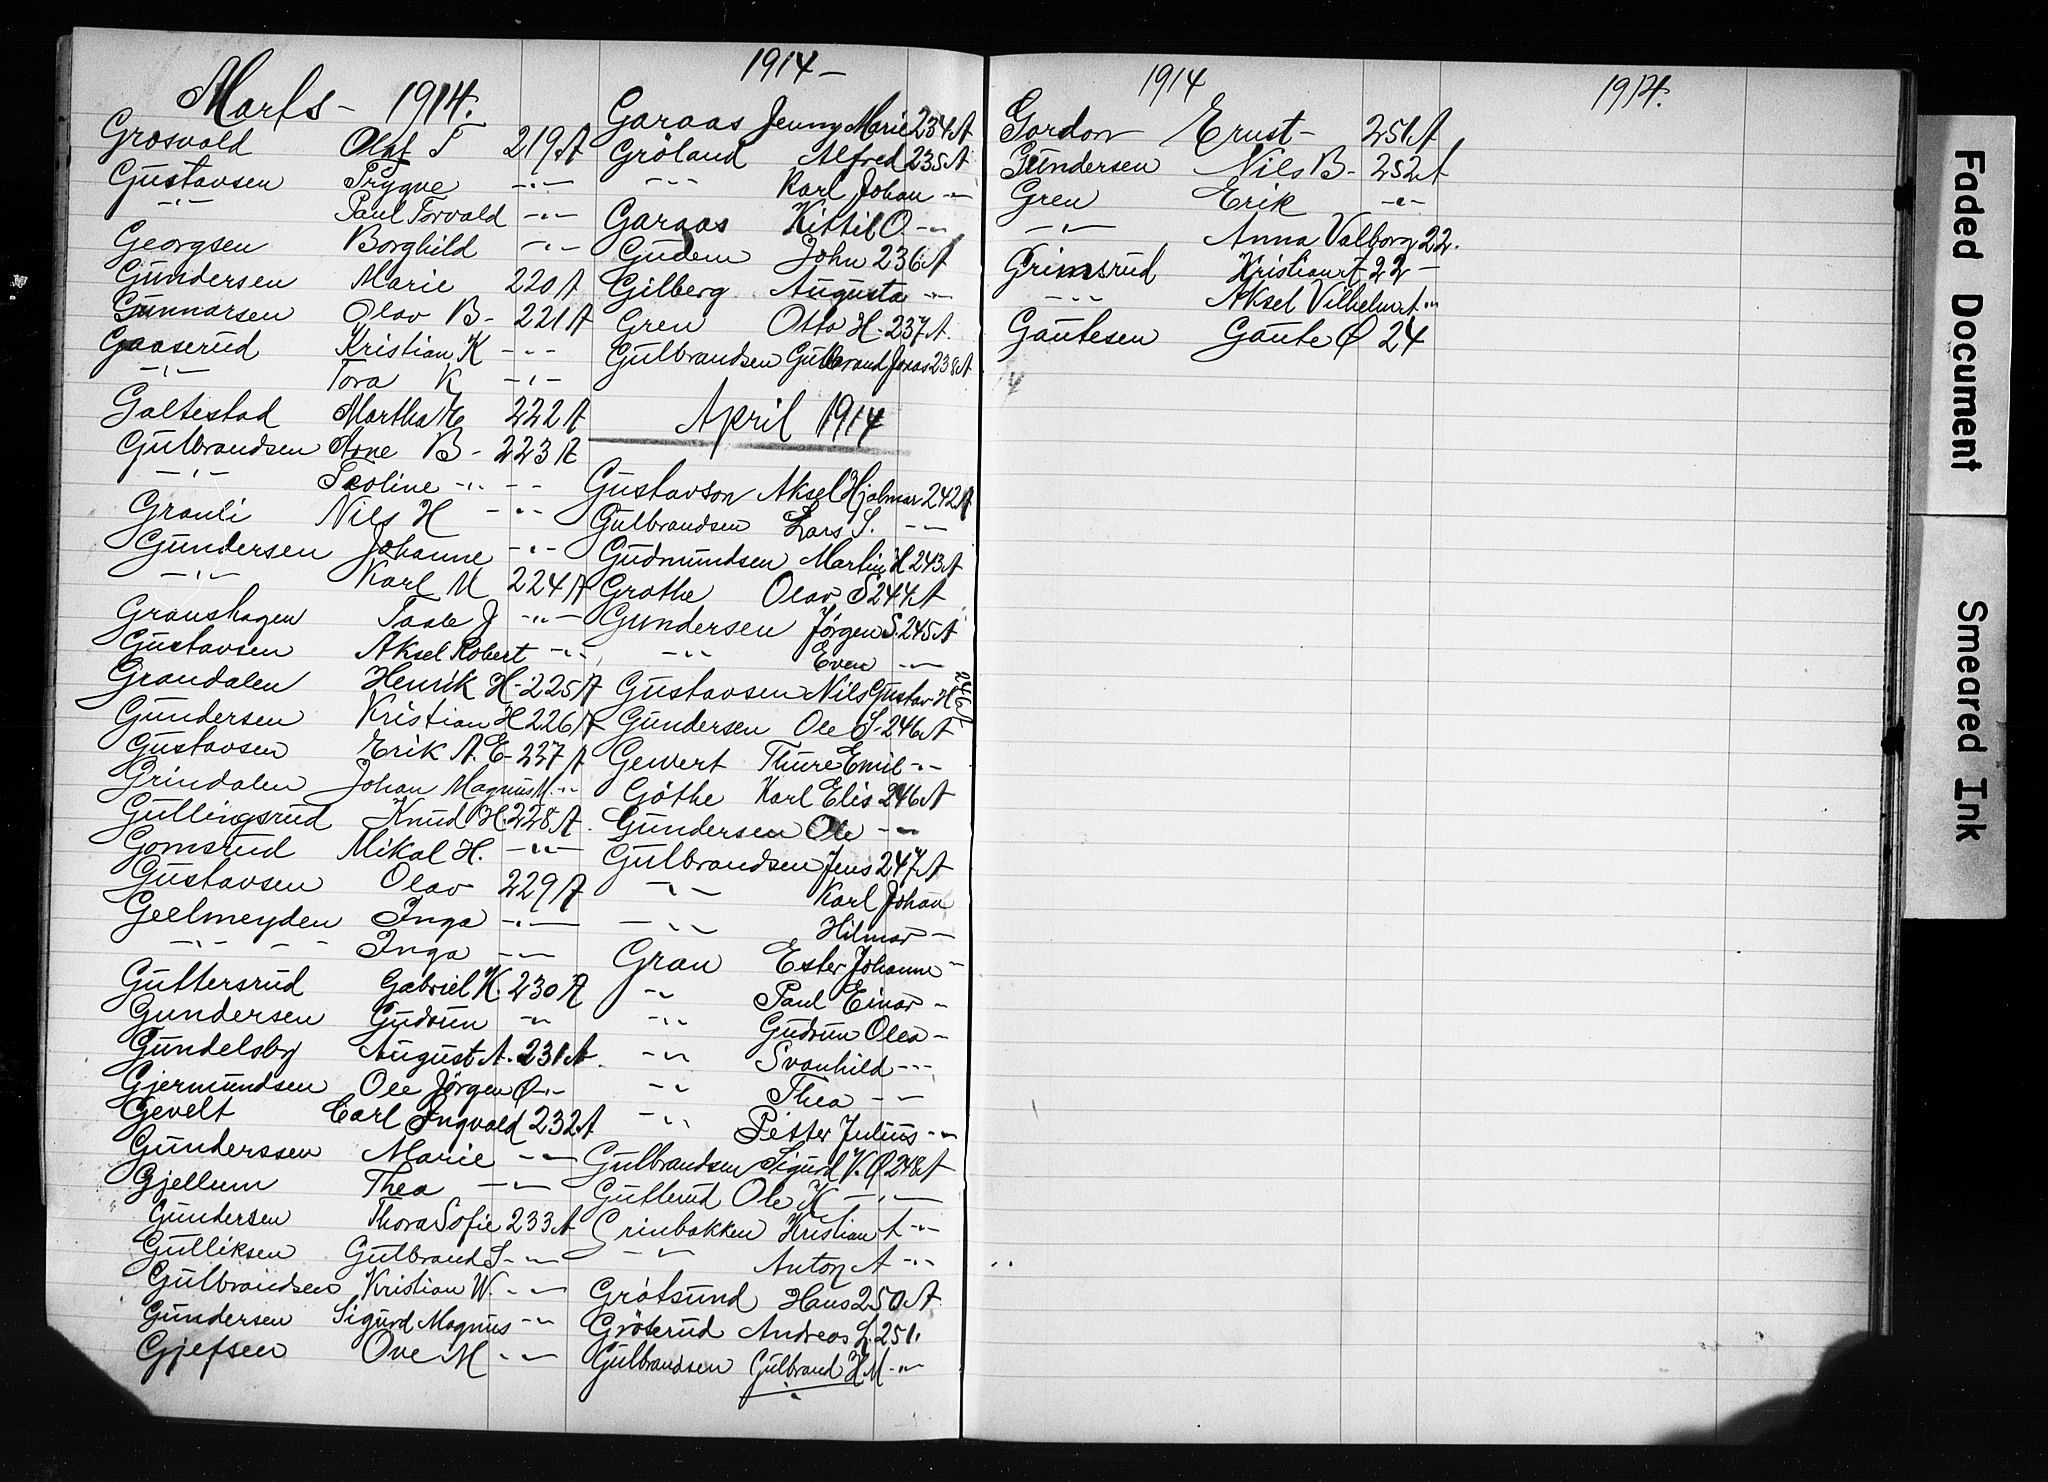 Marts - 1914.
Grosvold Olaf T 219 A
Gustavsen Trygve -"-
-"- Paul Torvald -"-
Georgsen Borghild -"-
Gundersen Marie 220 A
Gunnarsen Olav B- 221 A
Gaaserud Kristian K -"-
-"- Tora K -"-
Galtestad Martha E 222 A
Gulbrandsen Arne B- 223 A
-"- -"-
Grauli Nils H -"-
Gundersen Johanne -"-
-"- Karl M 224 A
Granshagen Taale J -"-
Gustavsen Aksel Robert -"-
Grandalen Henrik H- 225 A
Gundersen Kristian H 226 A
Gustavsen Erik A. E- 227 A
Grindalen Johan Magnus M. -"-
Gullingsrud Knud H. 228 A
Gomsrud Mikal H. -"-
Gustavsen Olav 229 A
Geelmeyden Inga -"-
-"- -"- Inga -"-
Guttersrud Gabriel K. 230 A
Gundersen Gudrun -"-
Gundelsby August A. 231 A
Gjermundsen Ole Jørgen Ø -"-
Gevelt Carl Ingvald 232 A
Gunderssen Marie -"-
Gjellum Thea -"-
Gundersen Thora Sofie 233 A
Gulliksen Gulbrand S- -"-
Gulbrandsen Kristian W. -"-
Gundersen Sigurd Magnus -"-
Gjefsen Ove M -"-
1914 -
Garaas Jenny Marie 234 A
Gröland Alfred 235 A
-"- Karl Johan -"-
Garaas Kittil O. -"-
Gudem John 236 A
Gilberg Augusta -"-
Gren Otto H- 237 A.
Gulbrandsen Gulbrand Jonas 238 A
April 1914
Gustavson Aksel Hjalmar 242 A
Gulbrandsen Lars S. -"-
Gudmundsen Martin H 243 A
Grothe Olav S 244 A
Gundersen Jørgen S. 245 A
-"- Even -"-
Gustavsen Nils Gustav H 246 A
Gundersen Ole S- 246 A
Gewert Thure Emil -"-
Göthe Karl Elis 246 A
Gundersen Ole -"-
Gulbrandsen Jens 247 A
-"- Karl Johan
-"- Hilmar -
Gran Ester Johanne -
-"- Paul Einar -
-"- Gudrun Olea -
-"- Svanhild -"-
-"- Thea -"-
-"- Petter Julius -"-
Gulbrandsen Sigurd V. Ø 248 A
Gutterud Ole K -"-
Grinbakken Kristian A -"-
-"- Anton A -"-
Grötsund Hans 250 A
Gröterud Andreas L. 251.
Gulbrandsen Gulbrand H. M -"-
1914
Gordon Ernst - 251 A
Gundersen Nils B- 252 A
Gren Erik -"-
-"- Anna Valborg 22.
Grimsrud Kristian A 22 -
-"- Aksel Vilhelm A -"-
Gautesen Gaute Ø 24
1914.
Faded Document
Smeared Ink